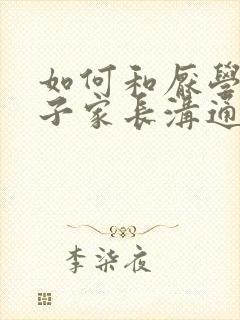 如何和厭學
子家長溝通
李柒夜